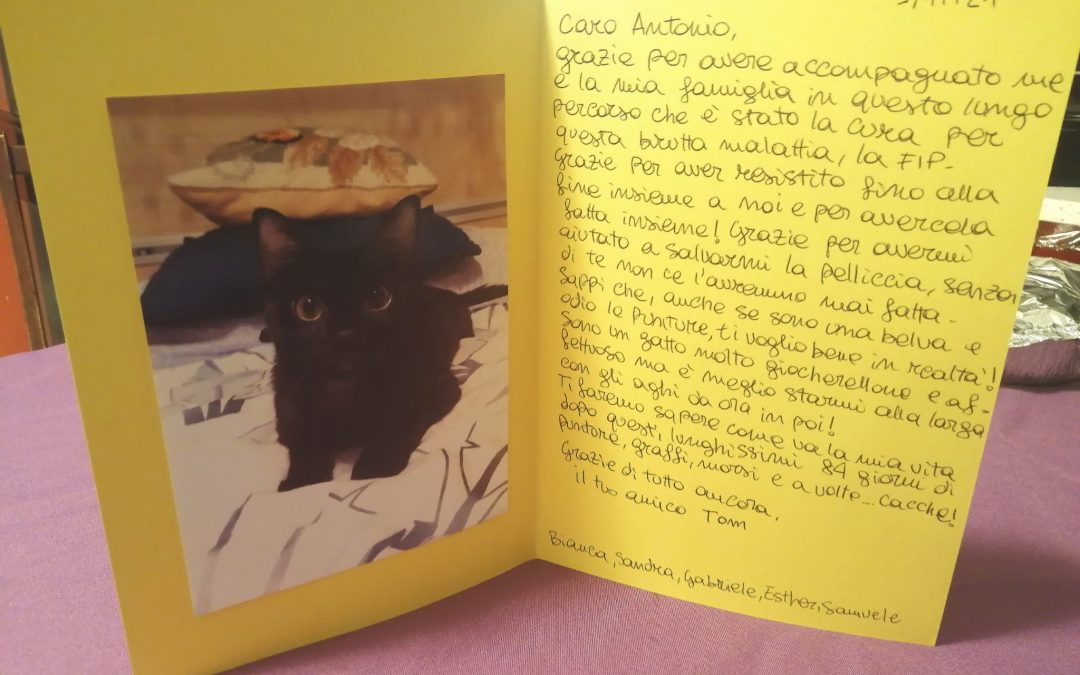 Caro Antonio,
grazie per avere accompagnato me
e la mia famiglia in questo lungo
percorso che è stato la cura per
questa brutta malattia, la FIP.
Grazie per aver resistito fino alla
fine insieme a noi e per avercela
fatta insieme! Grazie per avermi
aiutato a salvarmi la pelliccia, senza
di te non ce l'avremmo mai fatta.
Sappi che, anche se sono una belva e
odio le punture, ti voglio bene in realtà!
Sono un gatto molto giocherellone e af-
fettuoso ma è meglio starmi alla larga
con gli aghi da ora in poi!
Ti faremo sapere come va la mia vita
dopo questi lunghissimi 84 giorni di
punture, graffi, morsi e a volte... cacche!
Grazie di tutto ancora,
il tuo amico Tom
Bianca, Sandra, Gabriele, Esther, Samuele